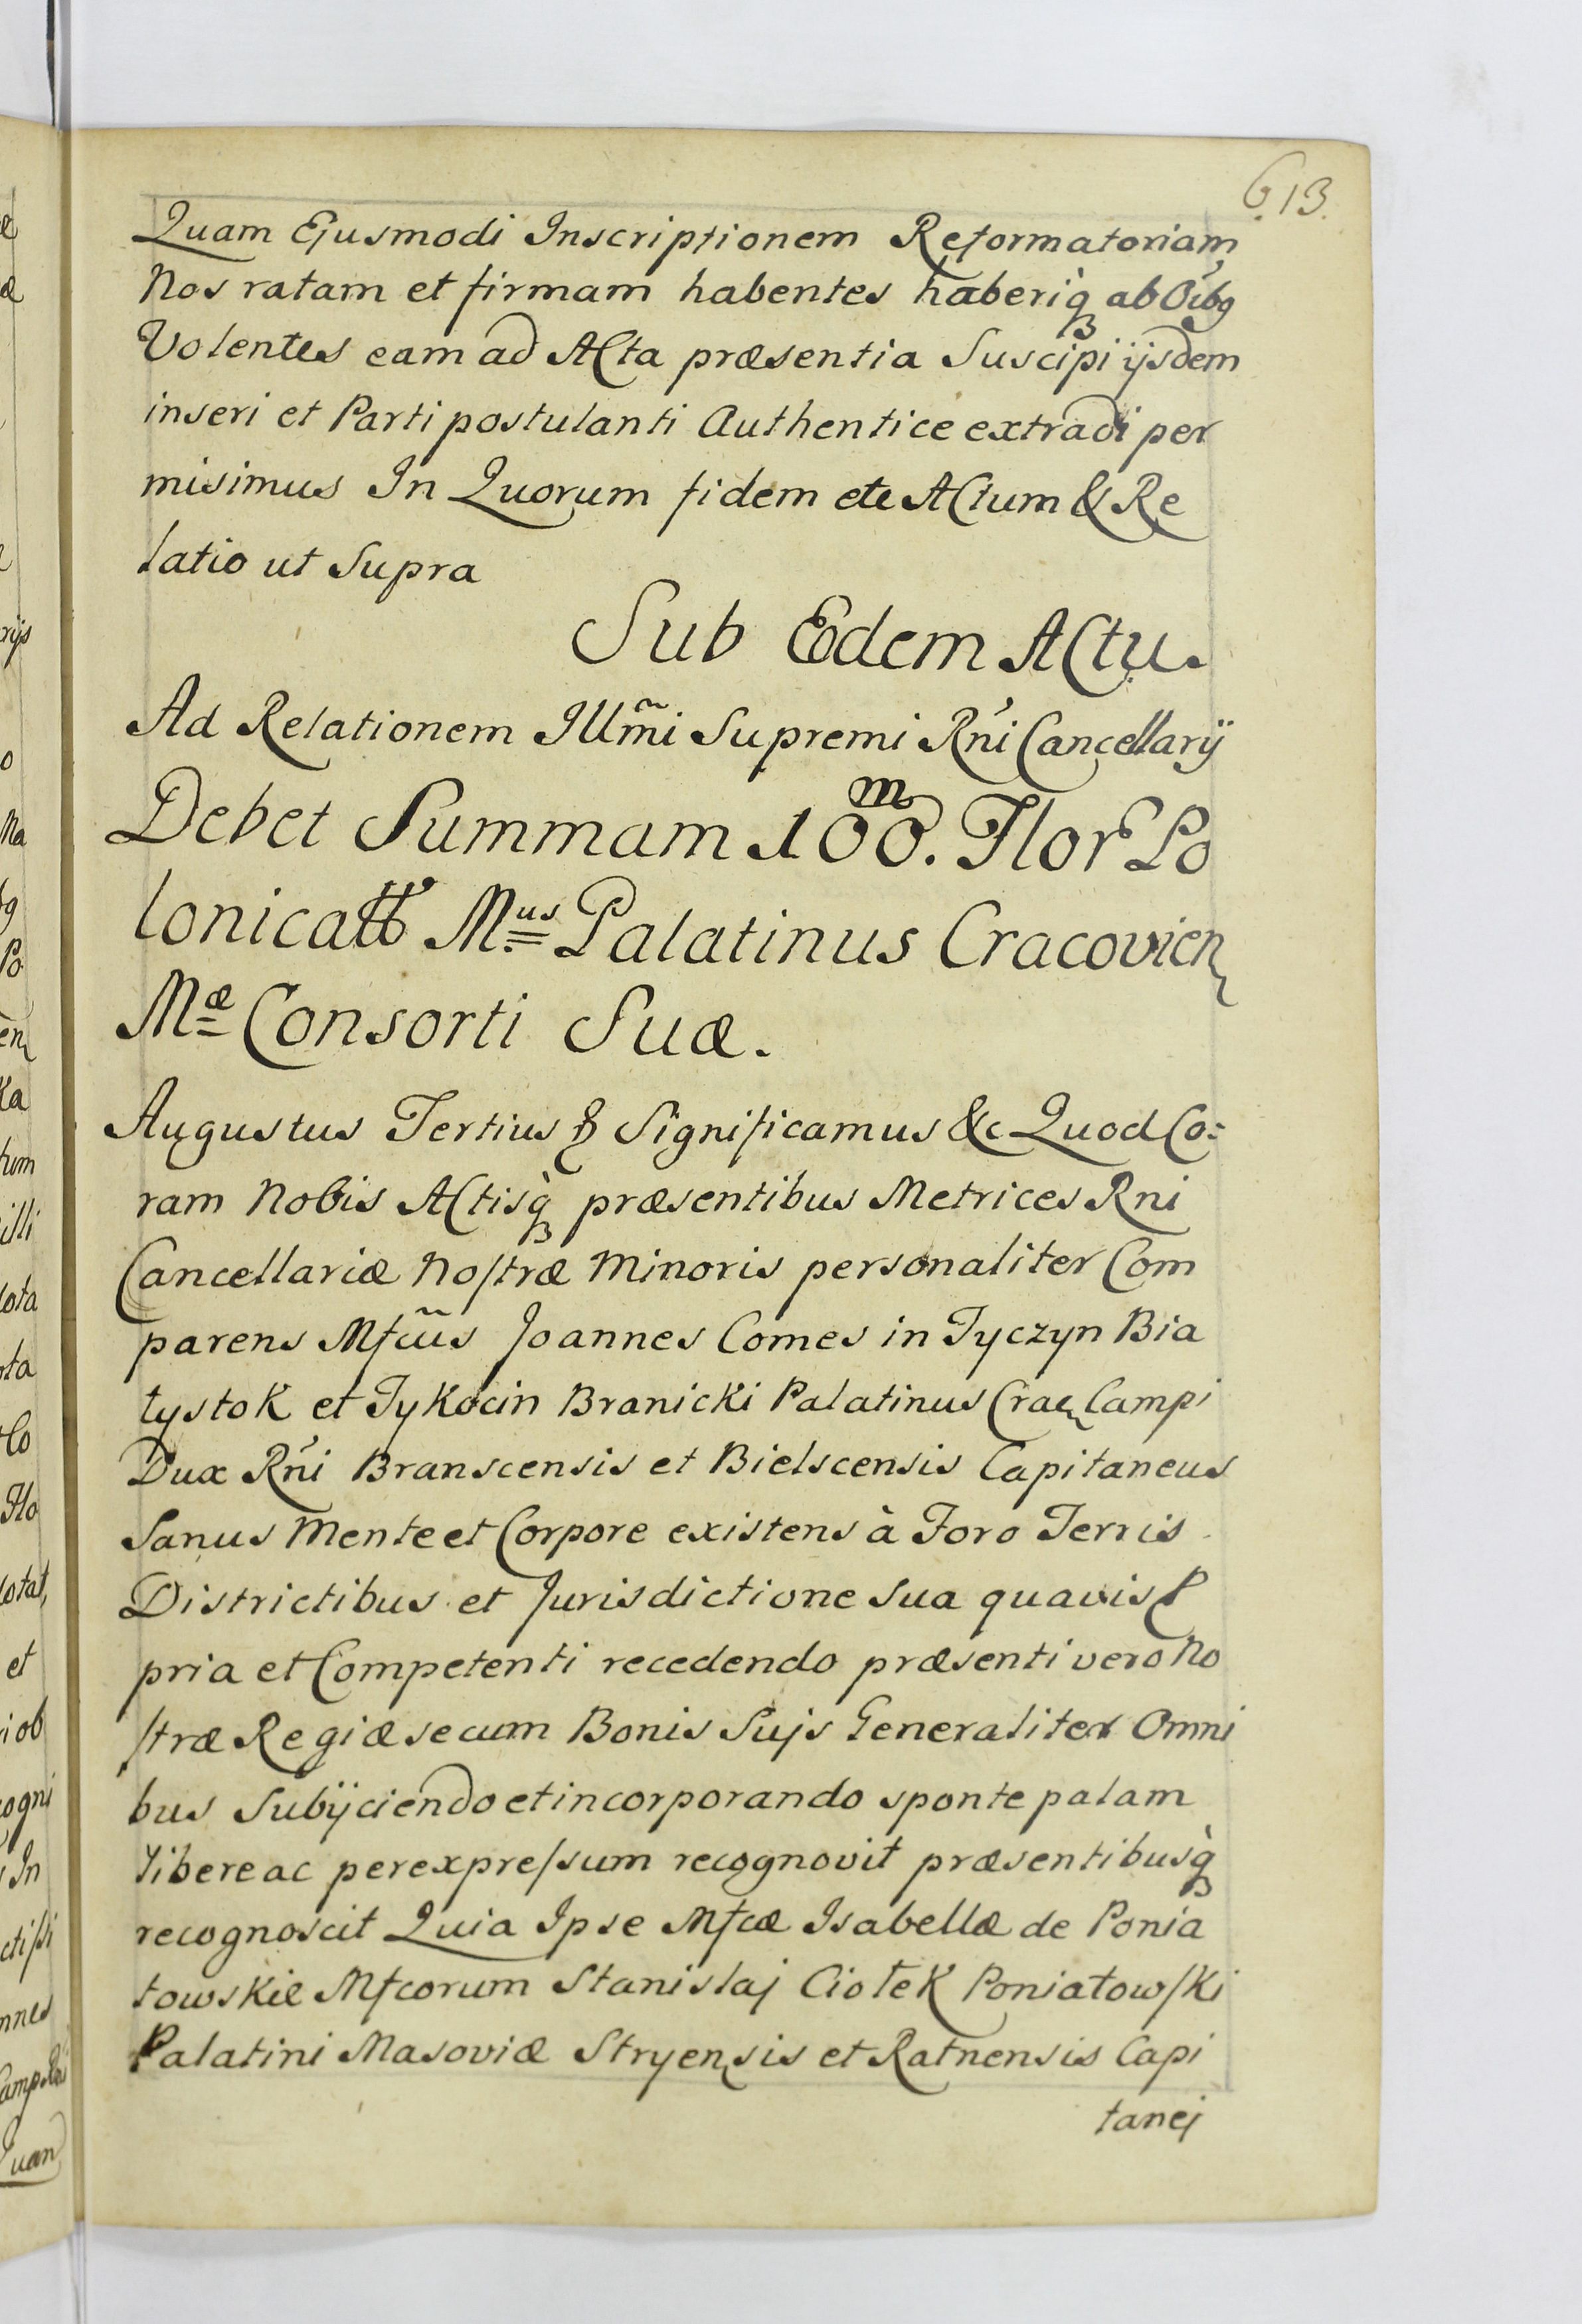 613.
Quam Ejusmodi Inscriptionem Reformatoriam
Nos ratam et firmam habentes haberiq̀ꝫ ab Oibꝰ
Volentes eam ad Acta præsentia Suscipi ijsdem
inseri et Parti postulanti Authentice extradi per
misimus In Quorum fidem etc Actum & Re
latio ut Supra
Sub Eodem Actu.
Ad Relationem Illm̃i Supremi Rńi Cancellarÿ
Debet Summam 100.m Flor Po
lonicall Mus Palatinus Cracovien
Mæ Consorti Suæ.
Augustus Tertius & Significamus &c Quod Co:
ram Nobis Actisq̀ꝫ præsentibus Metrices Rni
Cancellariæ Noſtræ Minoris personaliter Com
parens Mfcũs Joannes Comes in Tyczyn Bia
łystok et Tykocin Branicki Palatinus Crac Campi
Dux Rńi Branscensis et Bielscensis Capitaneus
Sanus Mente et Corpore existens à Foro Terris
Districtibus et Jurisdictione sua quavis P
pria et Competenti recedendo præsenti vero No
ſtræ Regiæ secum Bonis Sujs Generaliter Omni
bus Subÿciendo et incorporando sponte palam
libere ac per expreſsum recognovit præsentibusq̀ꝫ
recognoscit Quia Ipse Mfcæ Isabellæ de Ponia
towskie Mfcorum Stanislaj Ciołek Poniatowſki
Palatini Masoviæ Stryensis et Ratnensis Capi
tanej